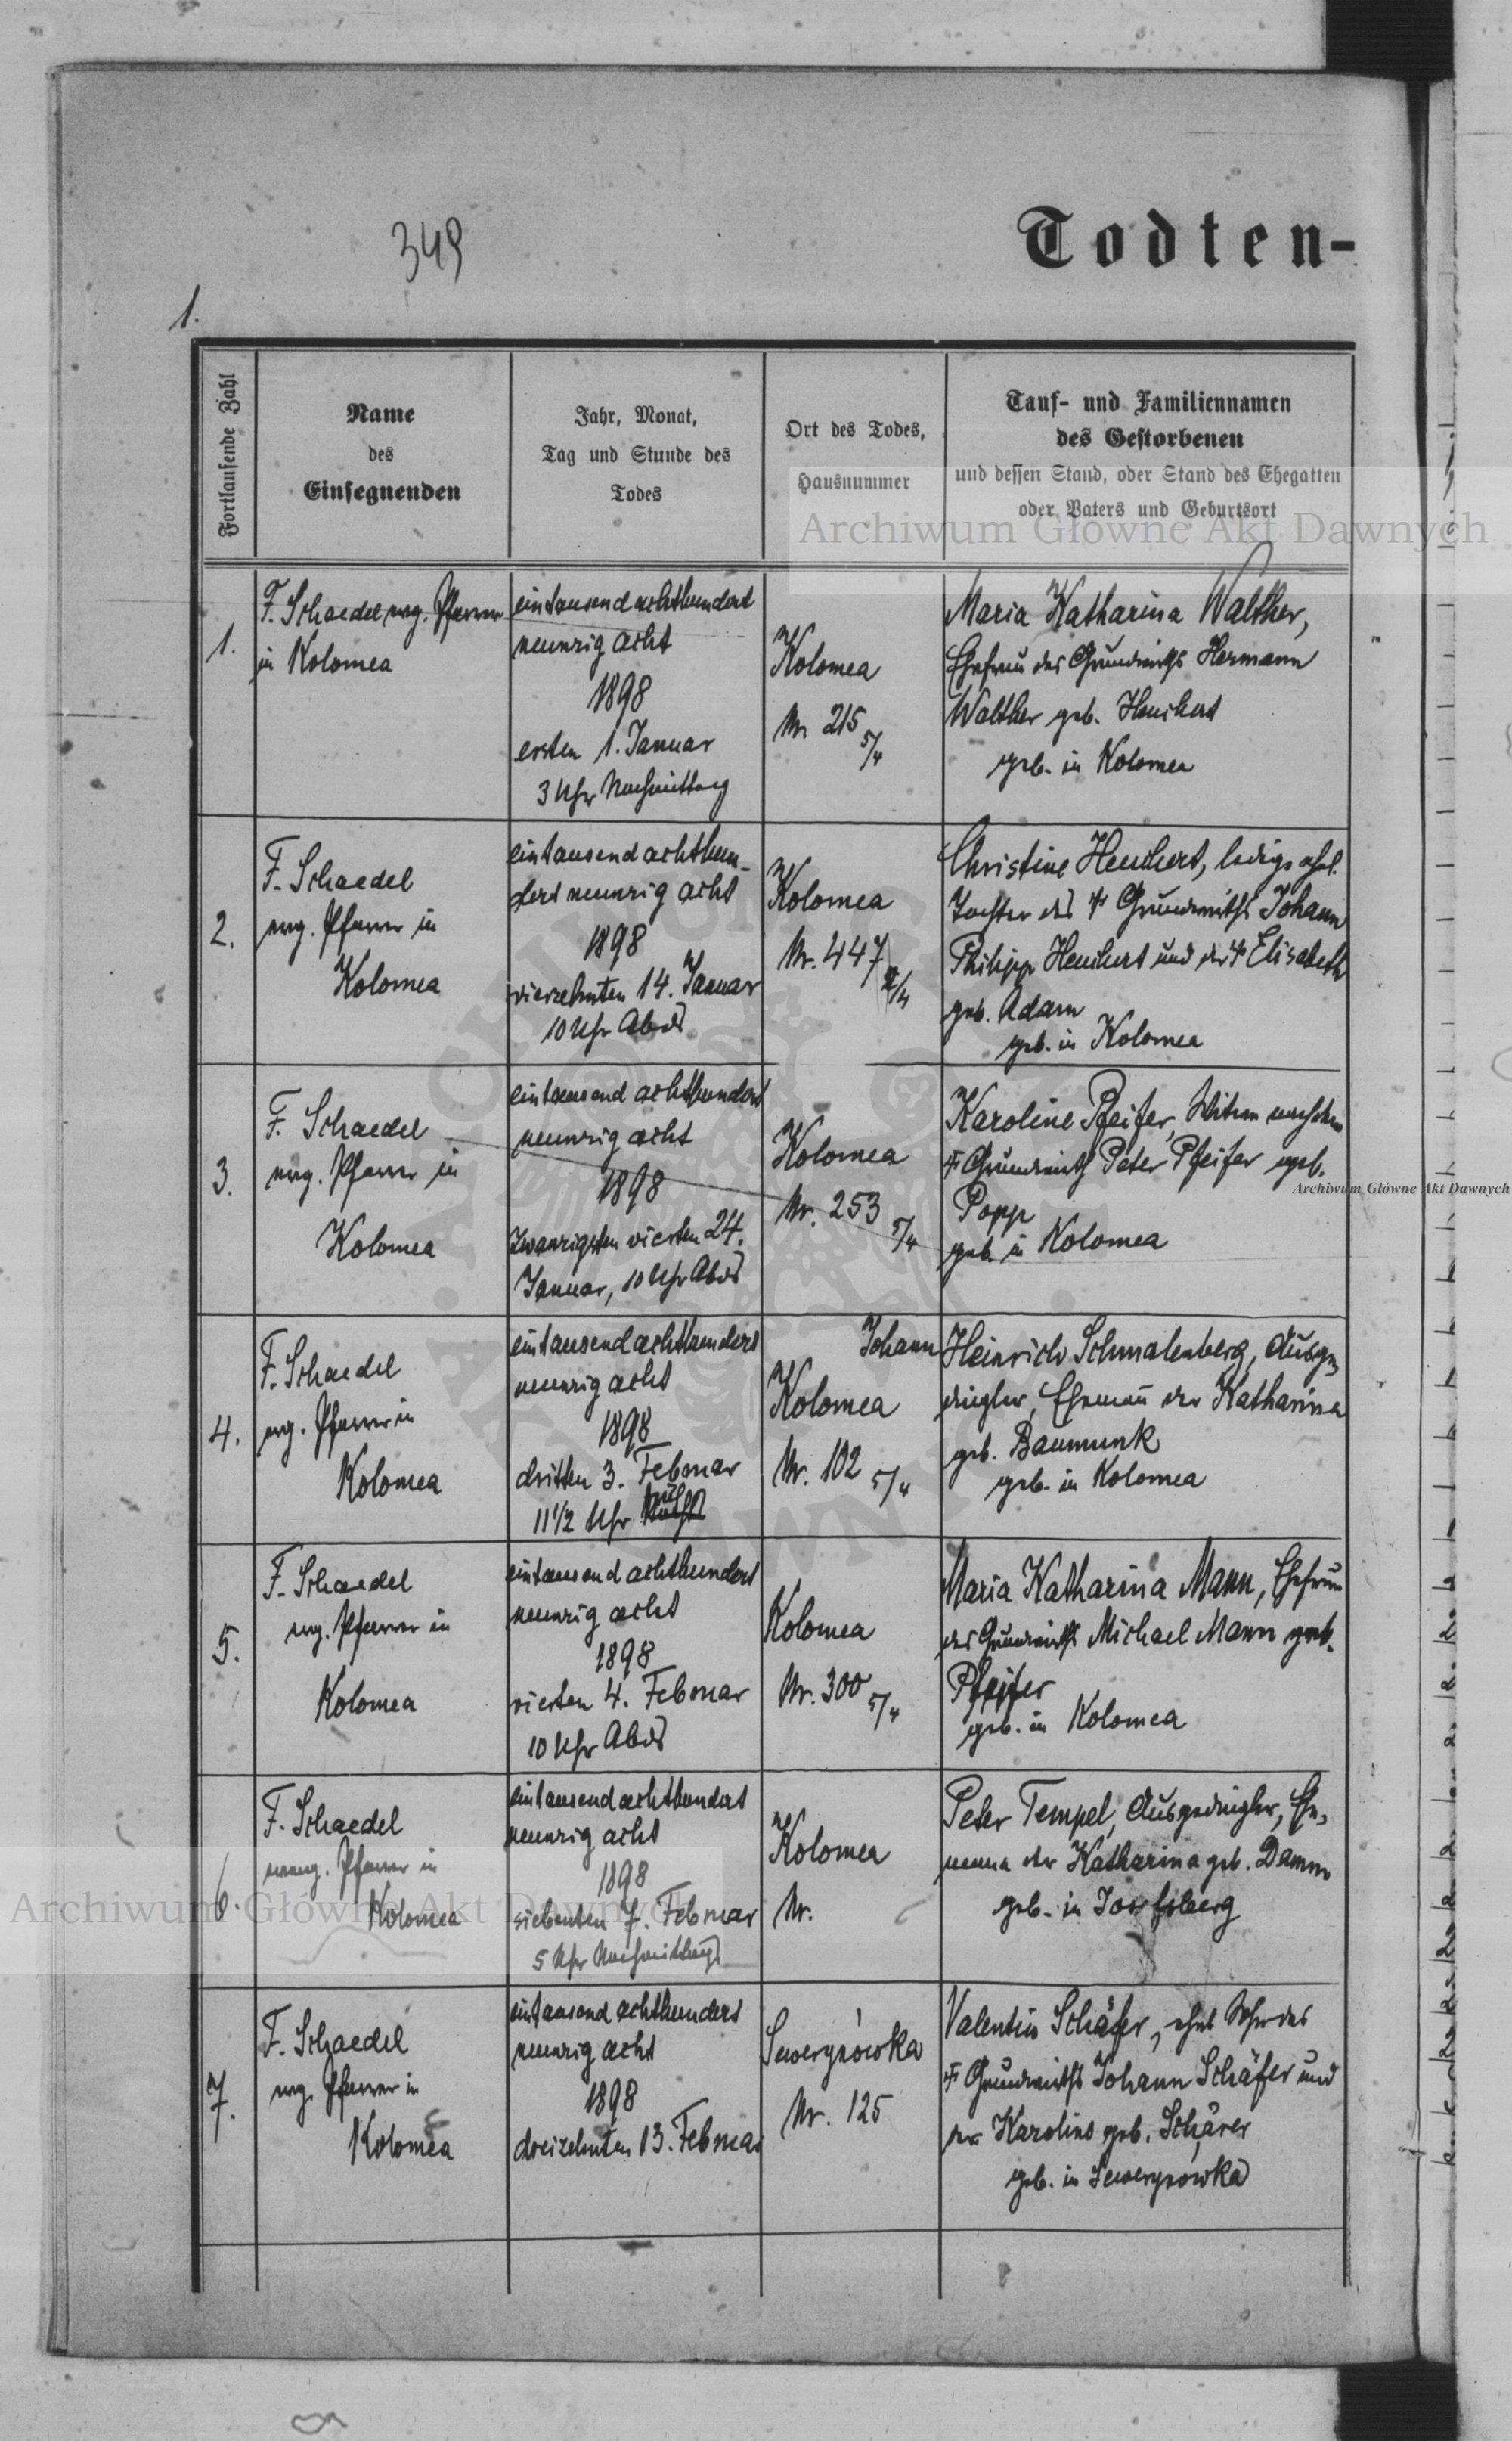 349
Todten-
1.
Fortlaufende Zahl
Name
des
Einsegnenden
Jahr, Monat,
Tag und Stunde des
Todes
Ort des Todes,
Hausnummer
Tauf- und Familiennamen
des Gestorbenen
und dessen Stand, oder Stand des Ehegatten
oder Vaters und Geburtsort
Archiwum Główne Akt Dawnych
1.
F. Schaedel evg. Pfarrer
in Kolomea
eintausend achthundert
neunzig acht
1898
ersten 1. Januar
3 Uhr Nachmittag
Kolomea
Nr. 215 5/4
Maria Katharina Walther,
Ehefrau des Grundwirths Hermann
Walther geb. Heuchert
geb. in Kolomea
2.
F. Schaedel
evg. Pfarrer in
Kolomea
eintausend achthun-
dert neunzig acht
1898
vierzehnten 14. Januar
10 Uhr Abds
Kolomea
Nr. 447 /4
Christine Heuchert, ledige ehel.
Tochter des † Grundwirths Johann
Philipp Heuchert und der † Elisabeth
geb. Adam
geb. in Kolomea
3.
F. Schaedel
evg. Pfarrer in
Kolomea
eintausend achthundert
neunzig acht
1898
zwanzigsten vierten 24.
Januar, 10 Uhr Abds
Kolomea
Nr. 253 5/4
Karoline Pfeifer, Witwe nach dem
† Grundwirth Peter Pfeifer geb.
Popp
geb. in Kolomea
Archiwum Główne Akt Dawnych
4.
F. Schaedel
evg. Pfarrer in
Kolomea
eintausend achthundert
neunzig acht
1898
dritten 3. Februar
11 1/2 Uhr
Kolomea
Nr. 102 5/4
Johann Heinrich Schmalenberg, Ausge-
dingler, Ehemann der Katharina
geb. Baumunk
geb. in Kolomea
5.
F. Schaedel
evg. Pfarrer in
Kolomea
eintausend achthundert
neunzig acht
1898
vierten 4. Februar
10 Uhr Abds
Kolomea
Nr. 300 5/4
Maria Katharina Mann, Ehefrau
des Grundwirths Michael Mann geb.
Pfeifer
geb. in Kolomea
6.
F. Schaedel
evang. Pfarrer in
Kolomea
eintausend achthundert
neunzig acht
1898
siebenten 7. Februar
5 Uhr Nachmittags
Kolomea
Nr.
Peter Tempel, Ausgedingler, Ehe-
mann der Katharina geb. Damm
geb. in
Archiwum Główne Akt Dawnych
7.
F. Schaedel
evg. Pfarrer in
Kolomea
eintausend achthundert
neunzig acht
1898
dreizehnten 13. Februar
Sewerynówka
Nr. 125
Valentin Schäfer, ehel Sohn des
† Grundwirths Johann Schäfer und
der Karoline geb. Schärer
geb. in Sewerynówka